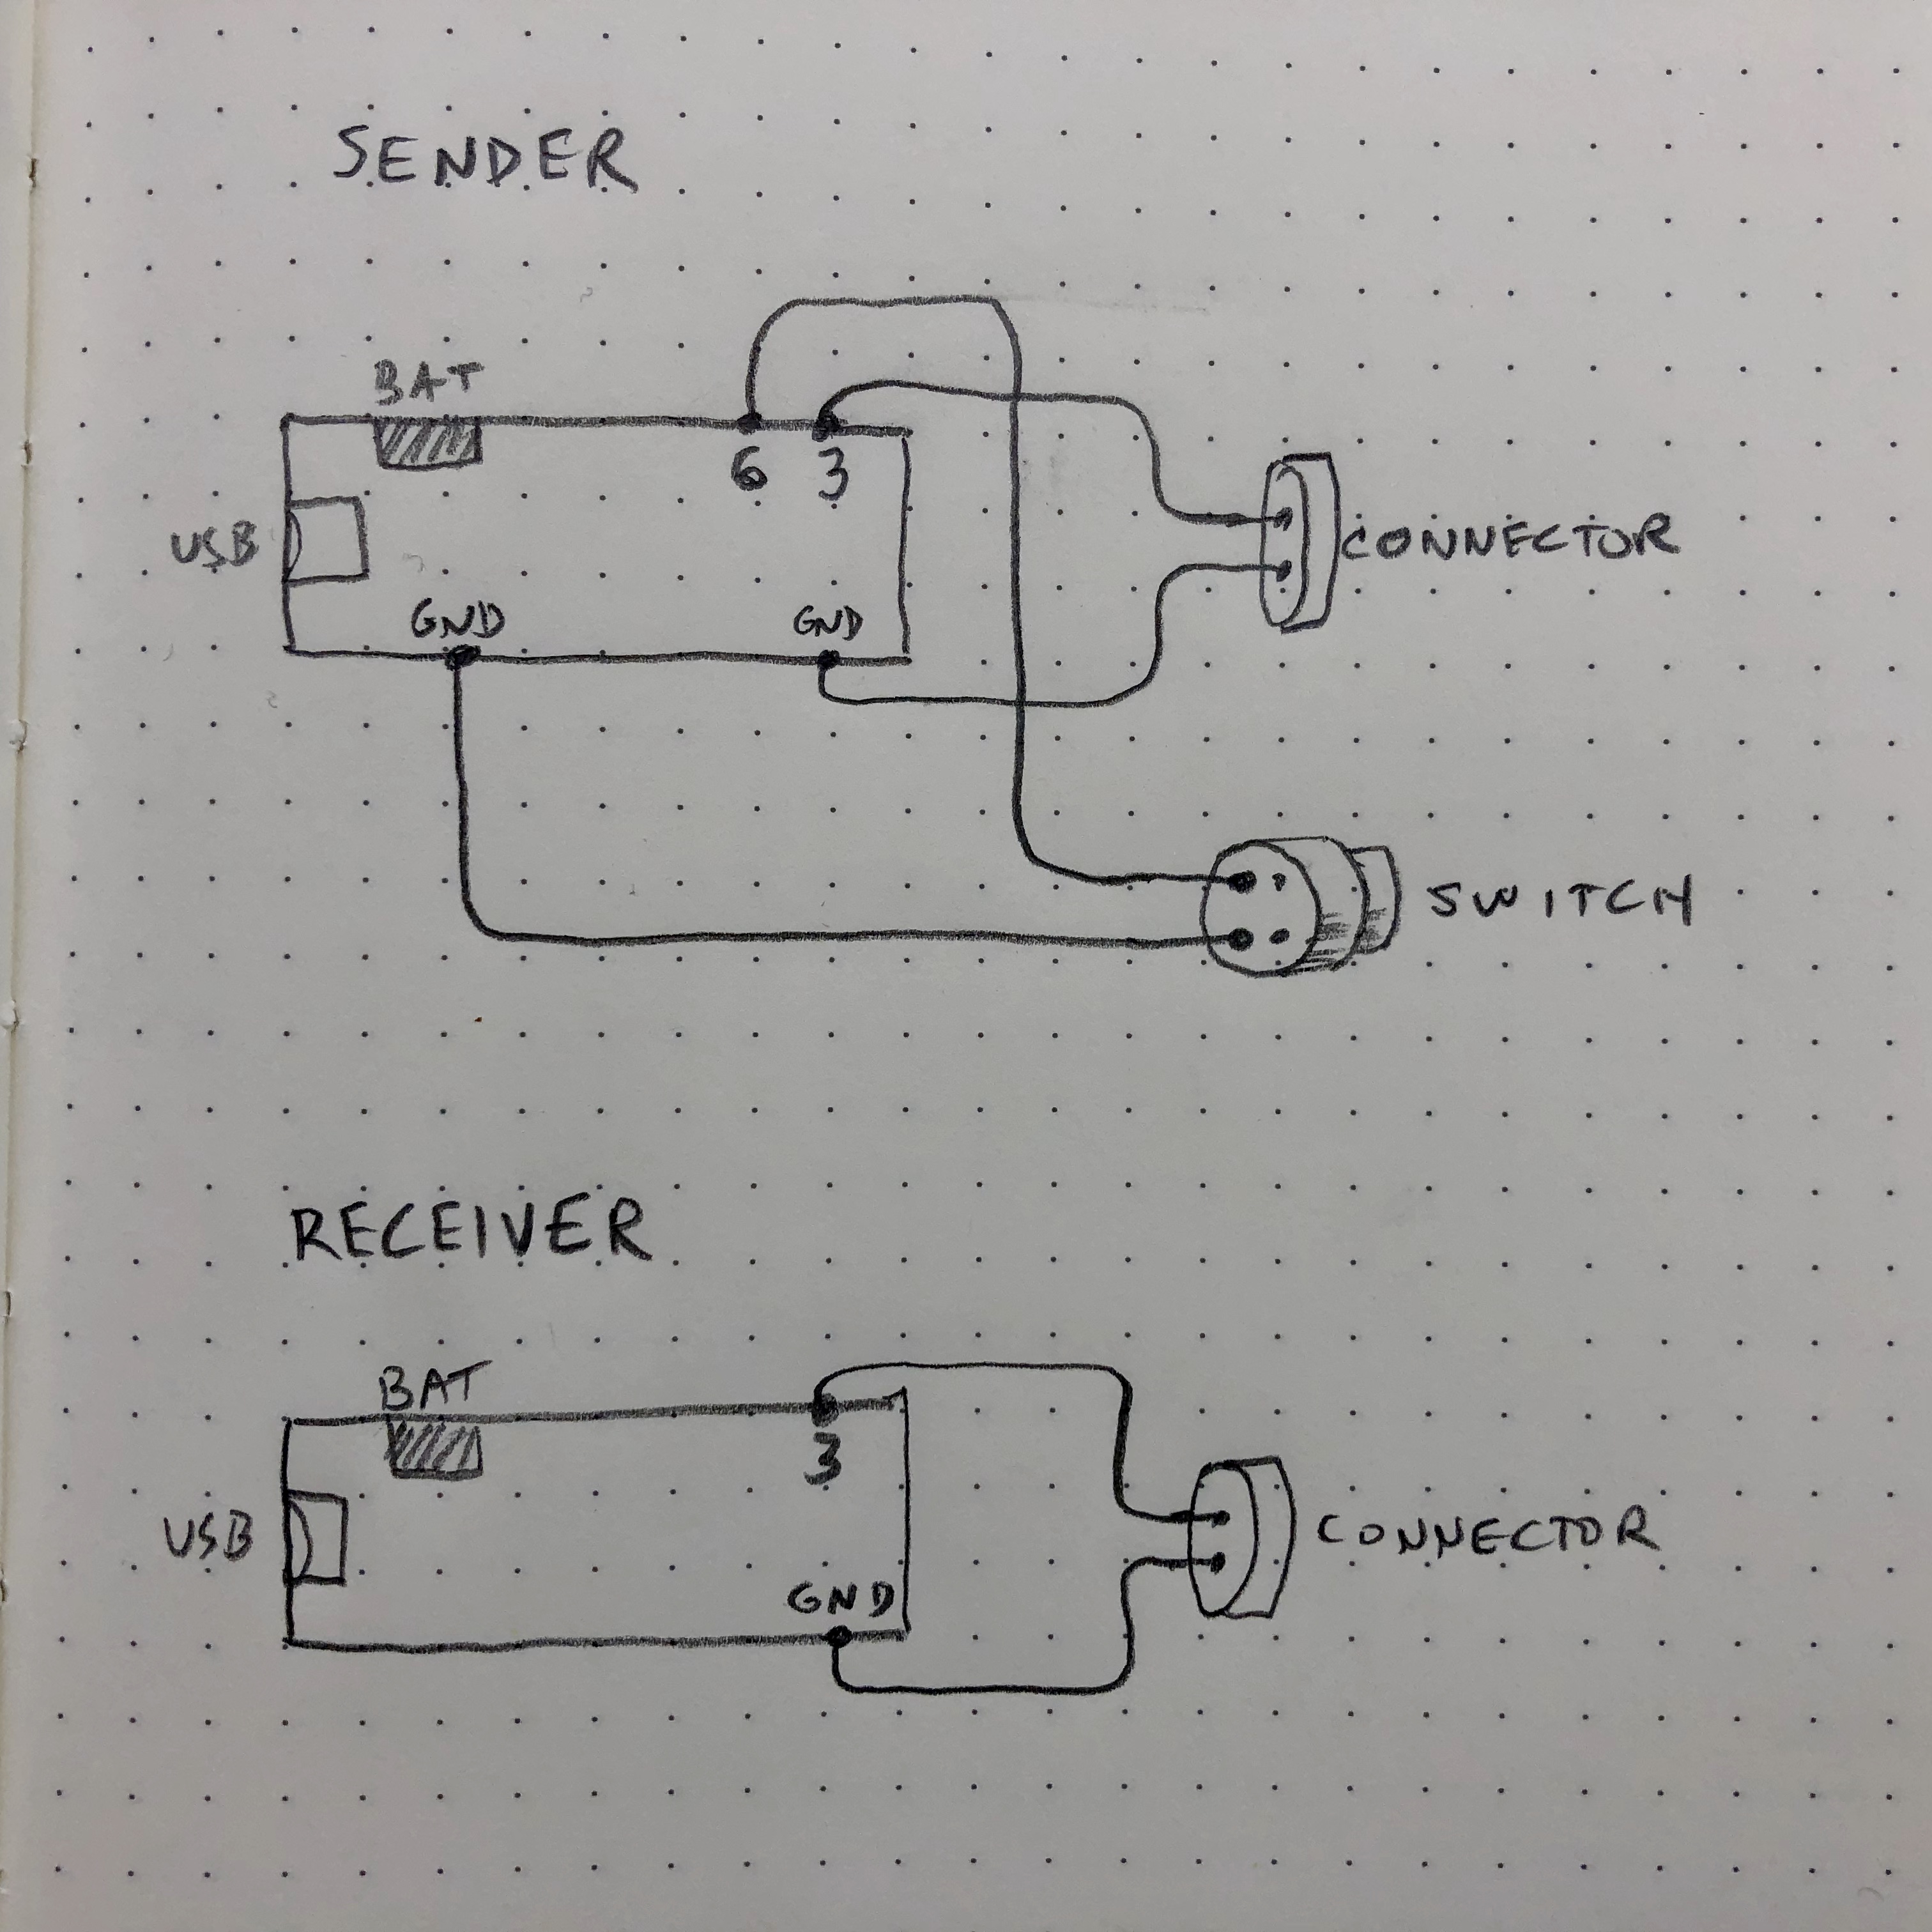 SENDER
BAT
6 3
USB
CONNECTOR
GND GND
SWITCH
RECEIVER
BAT
3
USB
CONNECTOR
GND